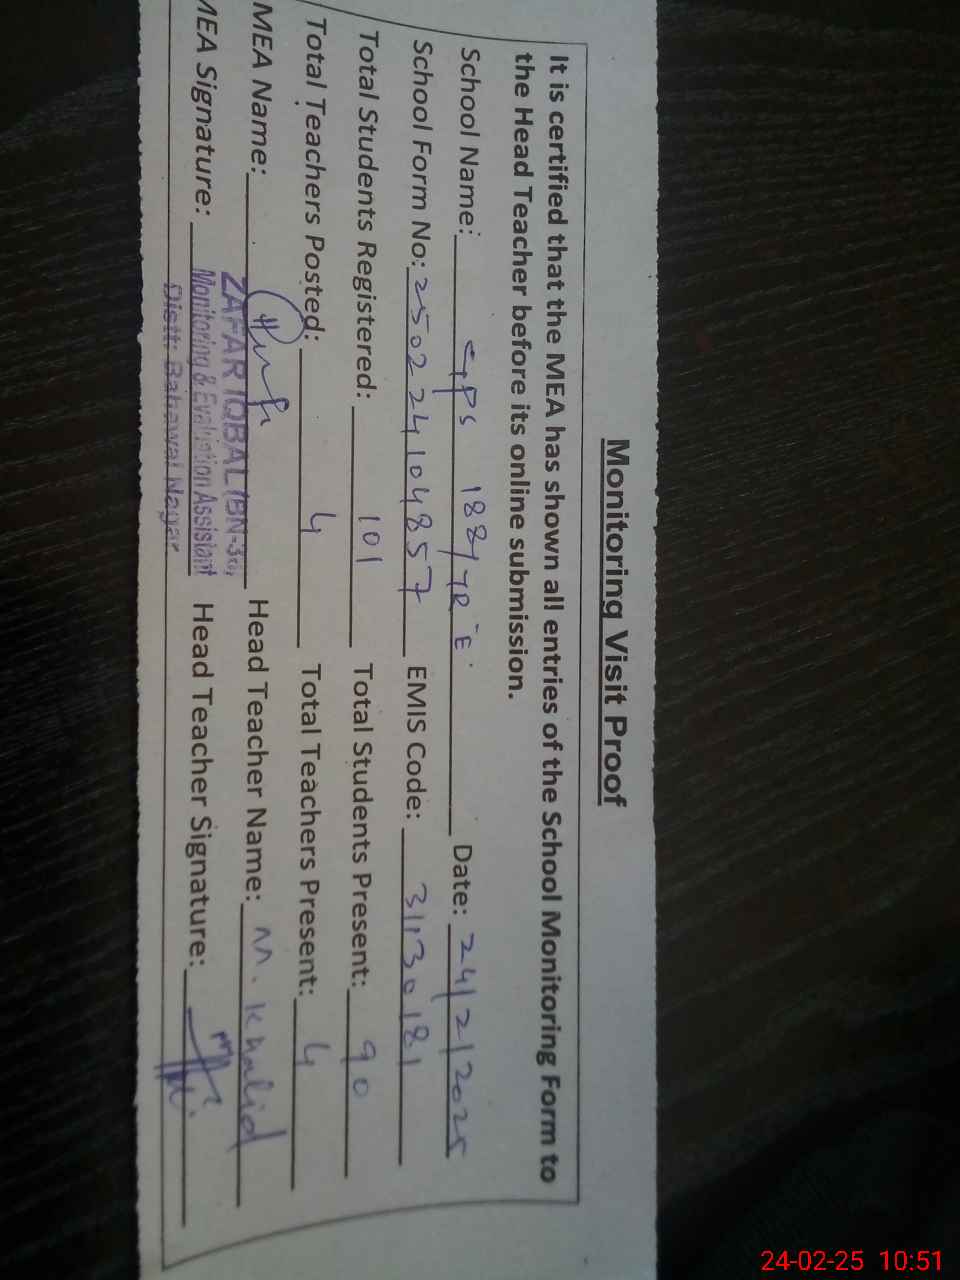 Monitoring Visit Proof
It is certified that the MEA has shown all entries of the School Monitoring Form to
the Head Teacher before its online submission.
School Name: GPS 188/7R-E. Date: 24/2/2025
School Form No: 250224104857 EMIS Code: 31130181
Total Students Registered: 101 Total Students Present: 90
Total Teachers Posted: 4 Total Teachers Present: 4
MEA Name: ZAFAR IQBAL Head Teacher Name: M. Khalid
MEA Signature: Monitoring & Evaluation Assistant Head Teacher Signature:
Distt: Bahawal Nagar
24-02-25 10:51